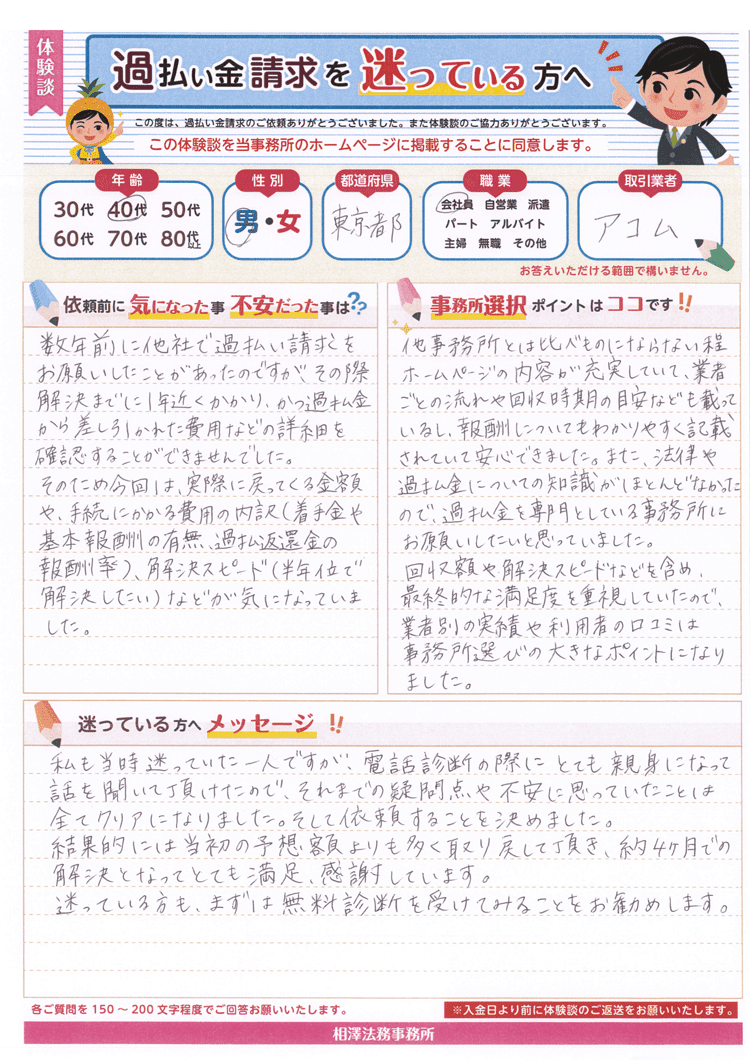 体験談
過払い金請求を迷っている方へ
この度は、過払い金請求のご依頼ありがとうございました。また体験談のご協力ありがとうございます。
この体験談を当事務所のホームページに掲載することに同意します。
年齢
30代 40代 50代
60代 70代 80代以上
性別
男・女
都道府県
東京都
職業
会社員 自営業 派遣
パート アルバイト
主婦 無職 その他
取引業者
アコム
お答えいただける範囲で構いません。
依頼前に気になった事 不安だった事は??
数年前に他社で過払い請求を
お願いしたことがあったのですが、その際
解決までに1年近くかかり、かつ過払金
から差し引かれた費用などの詳細を
確認することができませんでした。
そのため今回は、実際に戻ってくる金額
や、手続にかかる費用の内訳(着手金や
基本報酬の有無、過払返還金の
報酬率)、解決スピード(半年位で
解決したい)などが気になっていま
した。
事務所選択ポイントはココです!!
他事務所とは比べものにならない程
ホームページの内容が充実していて、業者
ごとの流れや回収時期の目安なども載って
いるし、報酬についてもわかりやすく記載
されていて安心できました。また、法律や
過払金についての知識がほとんどなかった
ので、過払金を専門としている事務所に
お願いしたいと思っていました。
回収額や解決スピードなどを含め、
最終的な満足度を重視していたので、
業者別の実績や利用者の口コミは
事務所選びの大きなポイントになり
ました。
迷っている方へメッセージ!!
私も当時迷っていた一人ですが、電話診断の際にとても親身になって
話を聞いて頂けたので、それまでの疑問点や不安に思っていたことは
全てクリアになりました。そして依頼することを決めました。
結果的には当初の予想額よりも多く取り戻して頂き、約4ヶ月での
解決となってとても満足、感謝しています。
迷っている方も、まずは無料診断を受けてみることをお勧めします。
各ご質問を150～200文字程度でご回答お願いいたします。
※入金日より前に体験談のご返送をお願いいたします。
相澤法務事務所